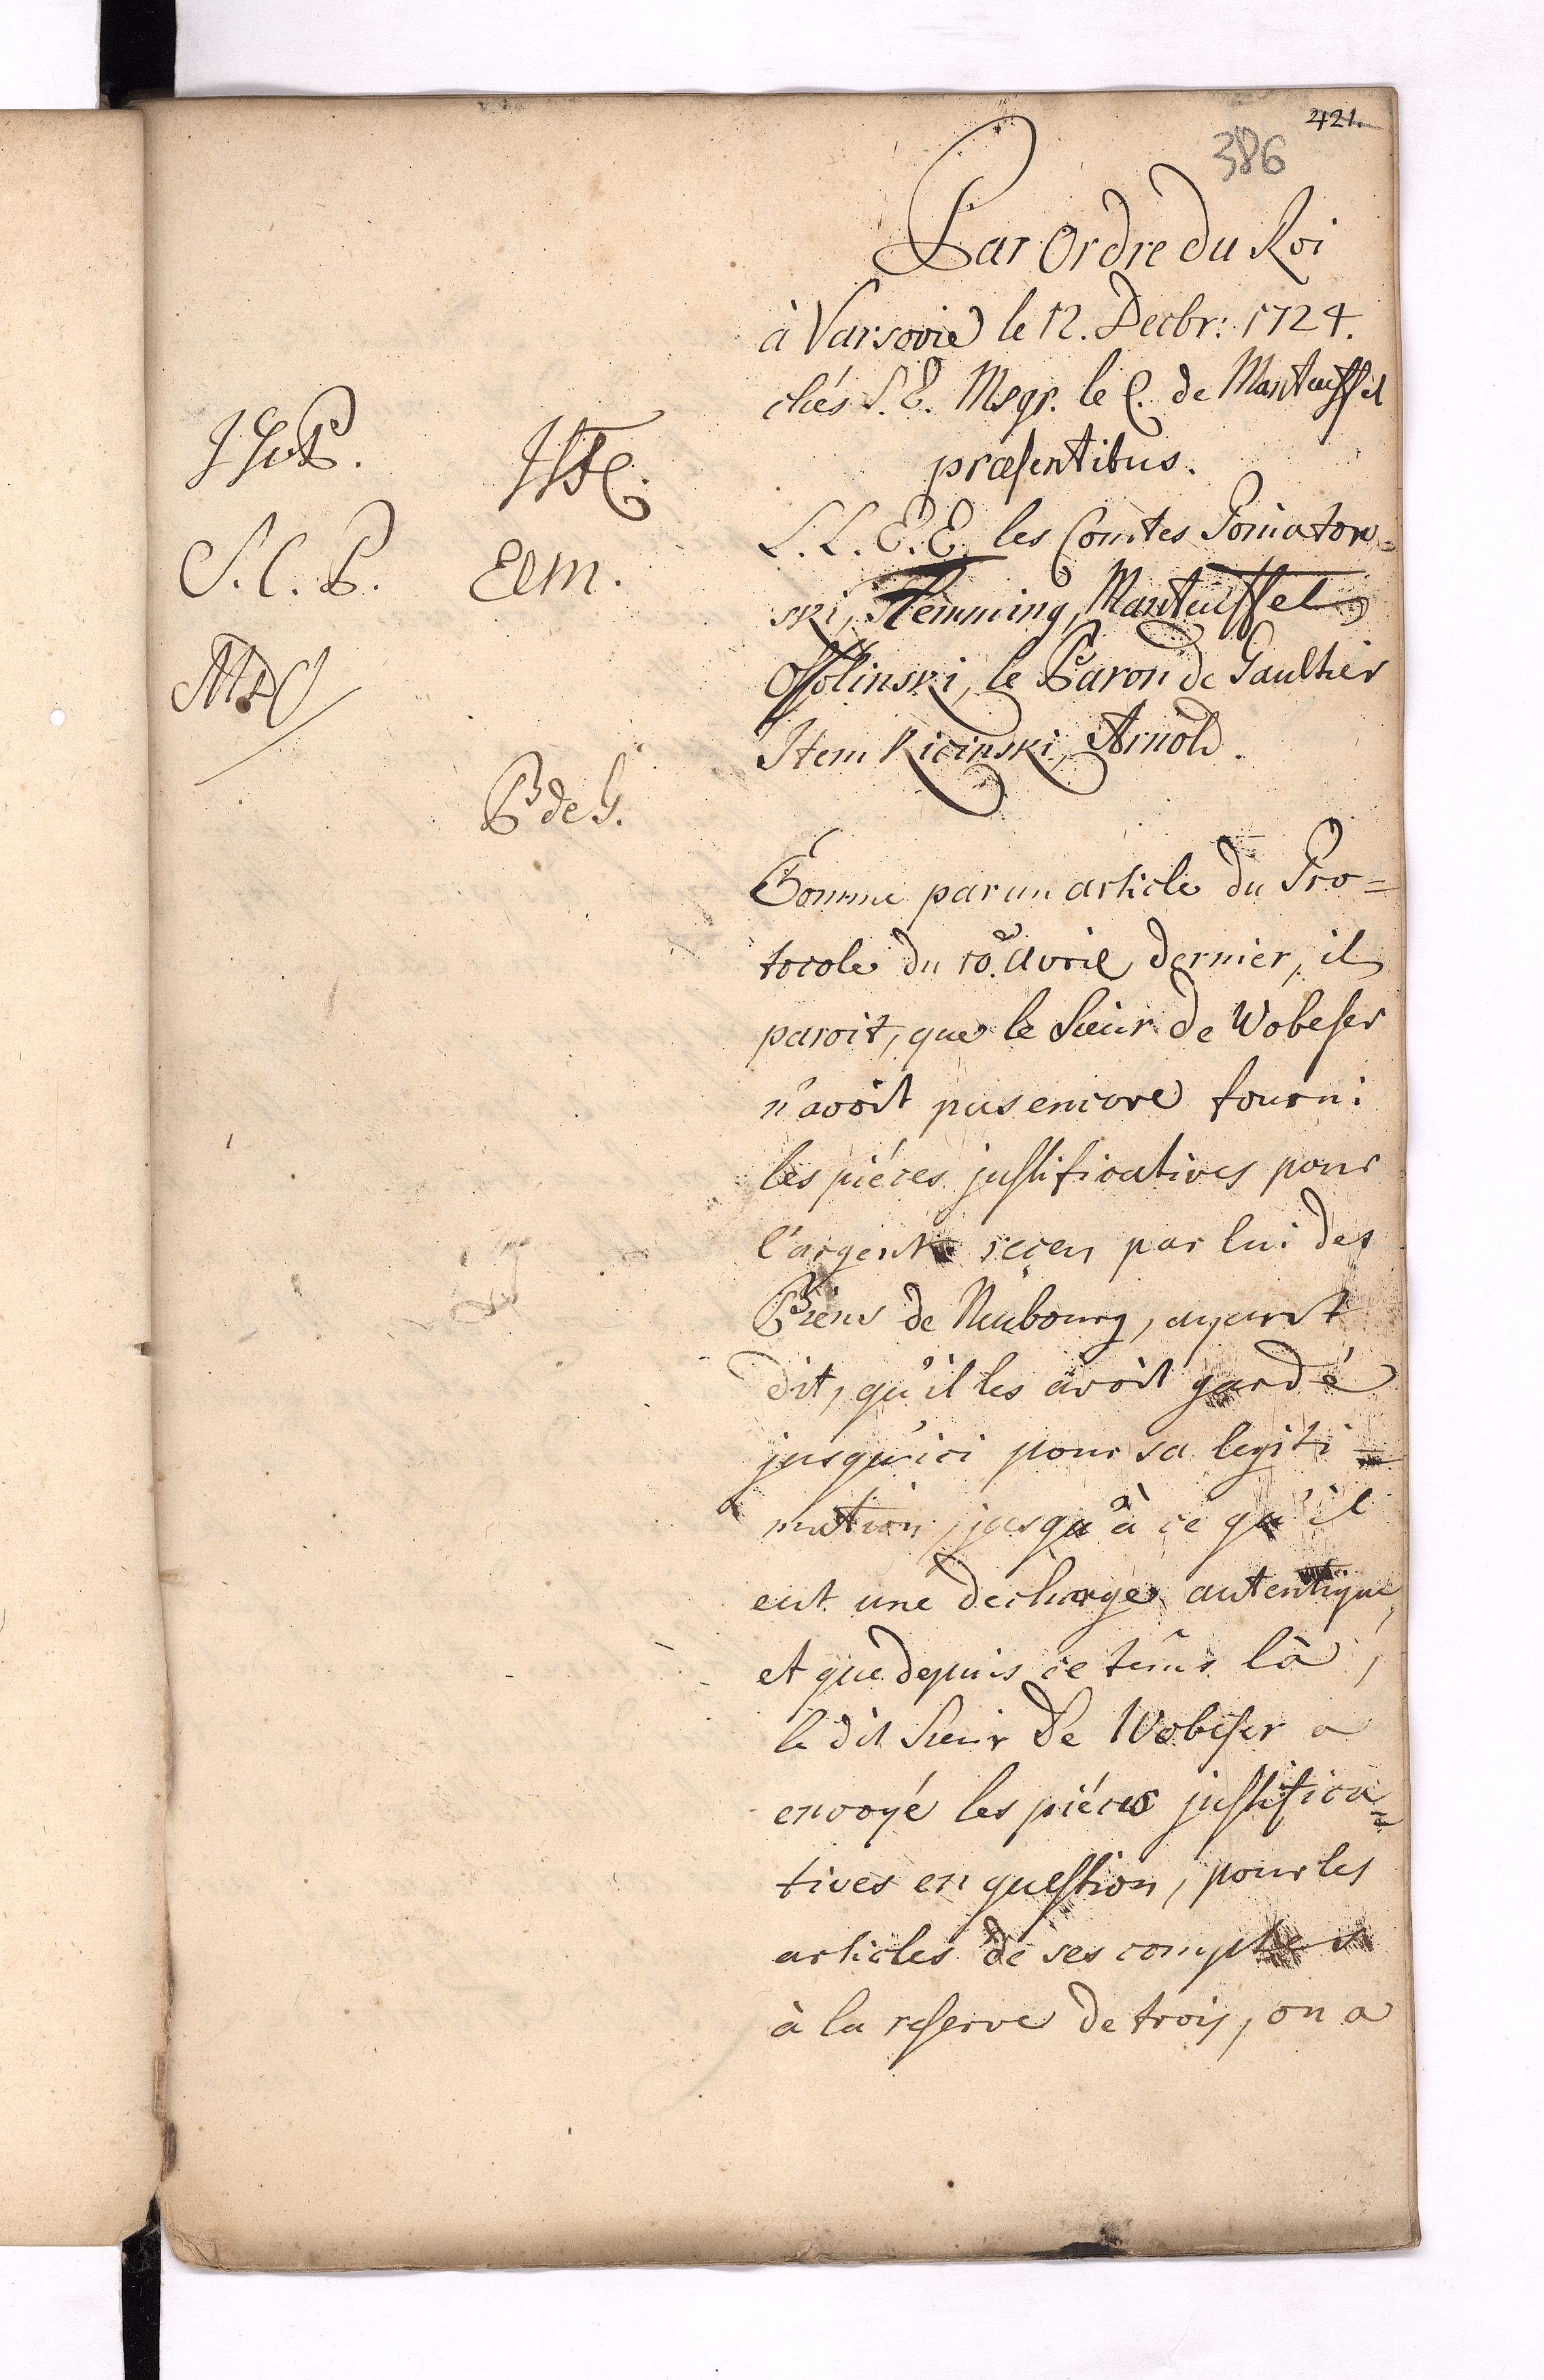 421.
386
Par Ordre du Roi
à Varsovie le 12. Decbr: 1724.
chés S. E. Msgr. le C. de Manteuffel
præsentibus.
L. L. E. E. les Comtes Poniatow=
ski, Flemming, Manteuffel,
Ossolinski, le Baron de Gaultier
Item Kicinski, Arnold.
S. C. P.
ECM.
B de G.
Comme par un article du Pro=
tocole du 10.e Avril dernier, il
paroit, que le Sieur de Wobeser
n'avoit pas encore fourni
les piéces justificatives pour
l'argent reçeu par lui des
Biens de Neubourg, ayant
dit, qu'il les avoit gardé
jusqu'ici pour sa legiti=
mation, jusqu'à ce qu'il
eut une decharge autentique,
et que depuis ce tems là,
le dit Sieur de Wobeser a
envoyé les piéces justifica=
tives en question, pour les
articles de ses comptes
à la reserve de trois, on a